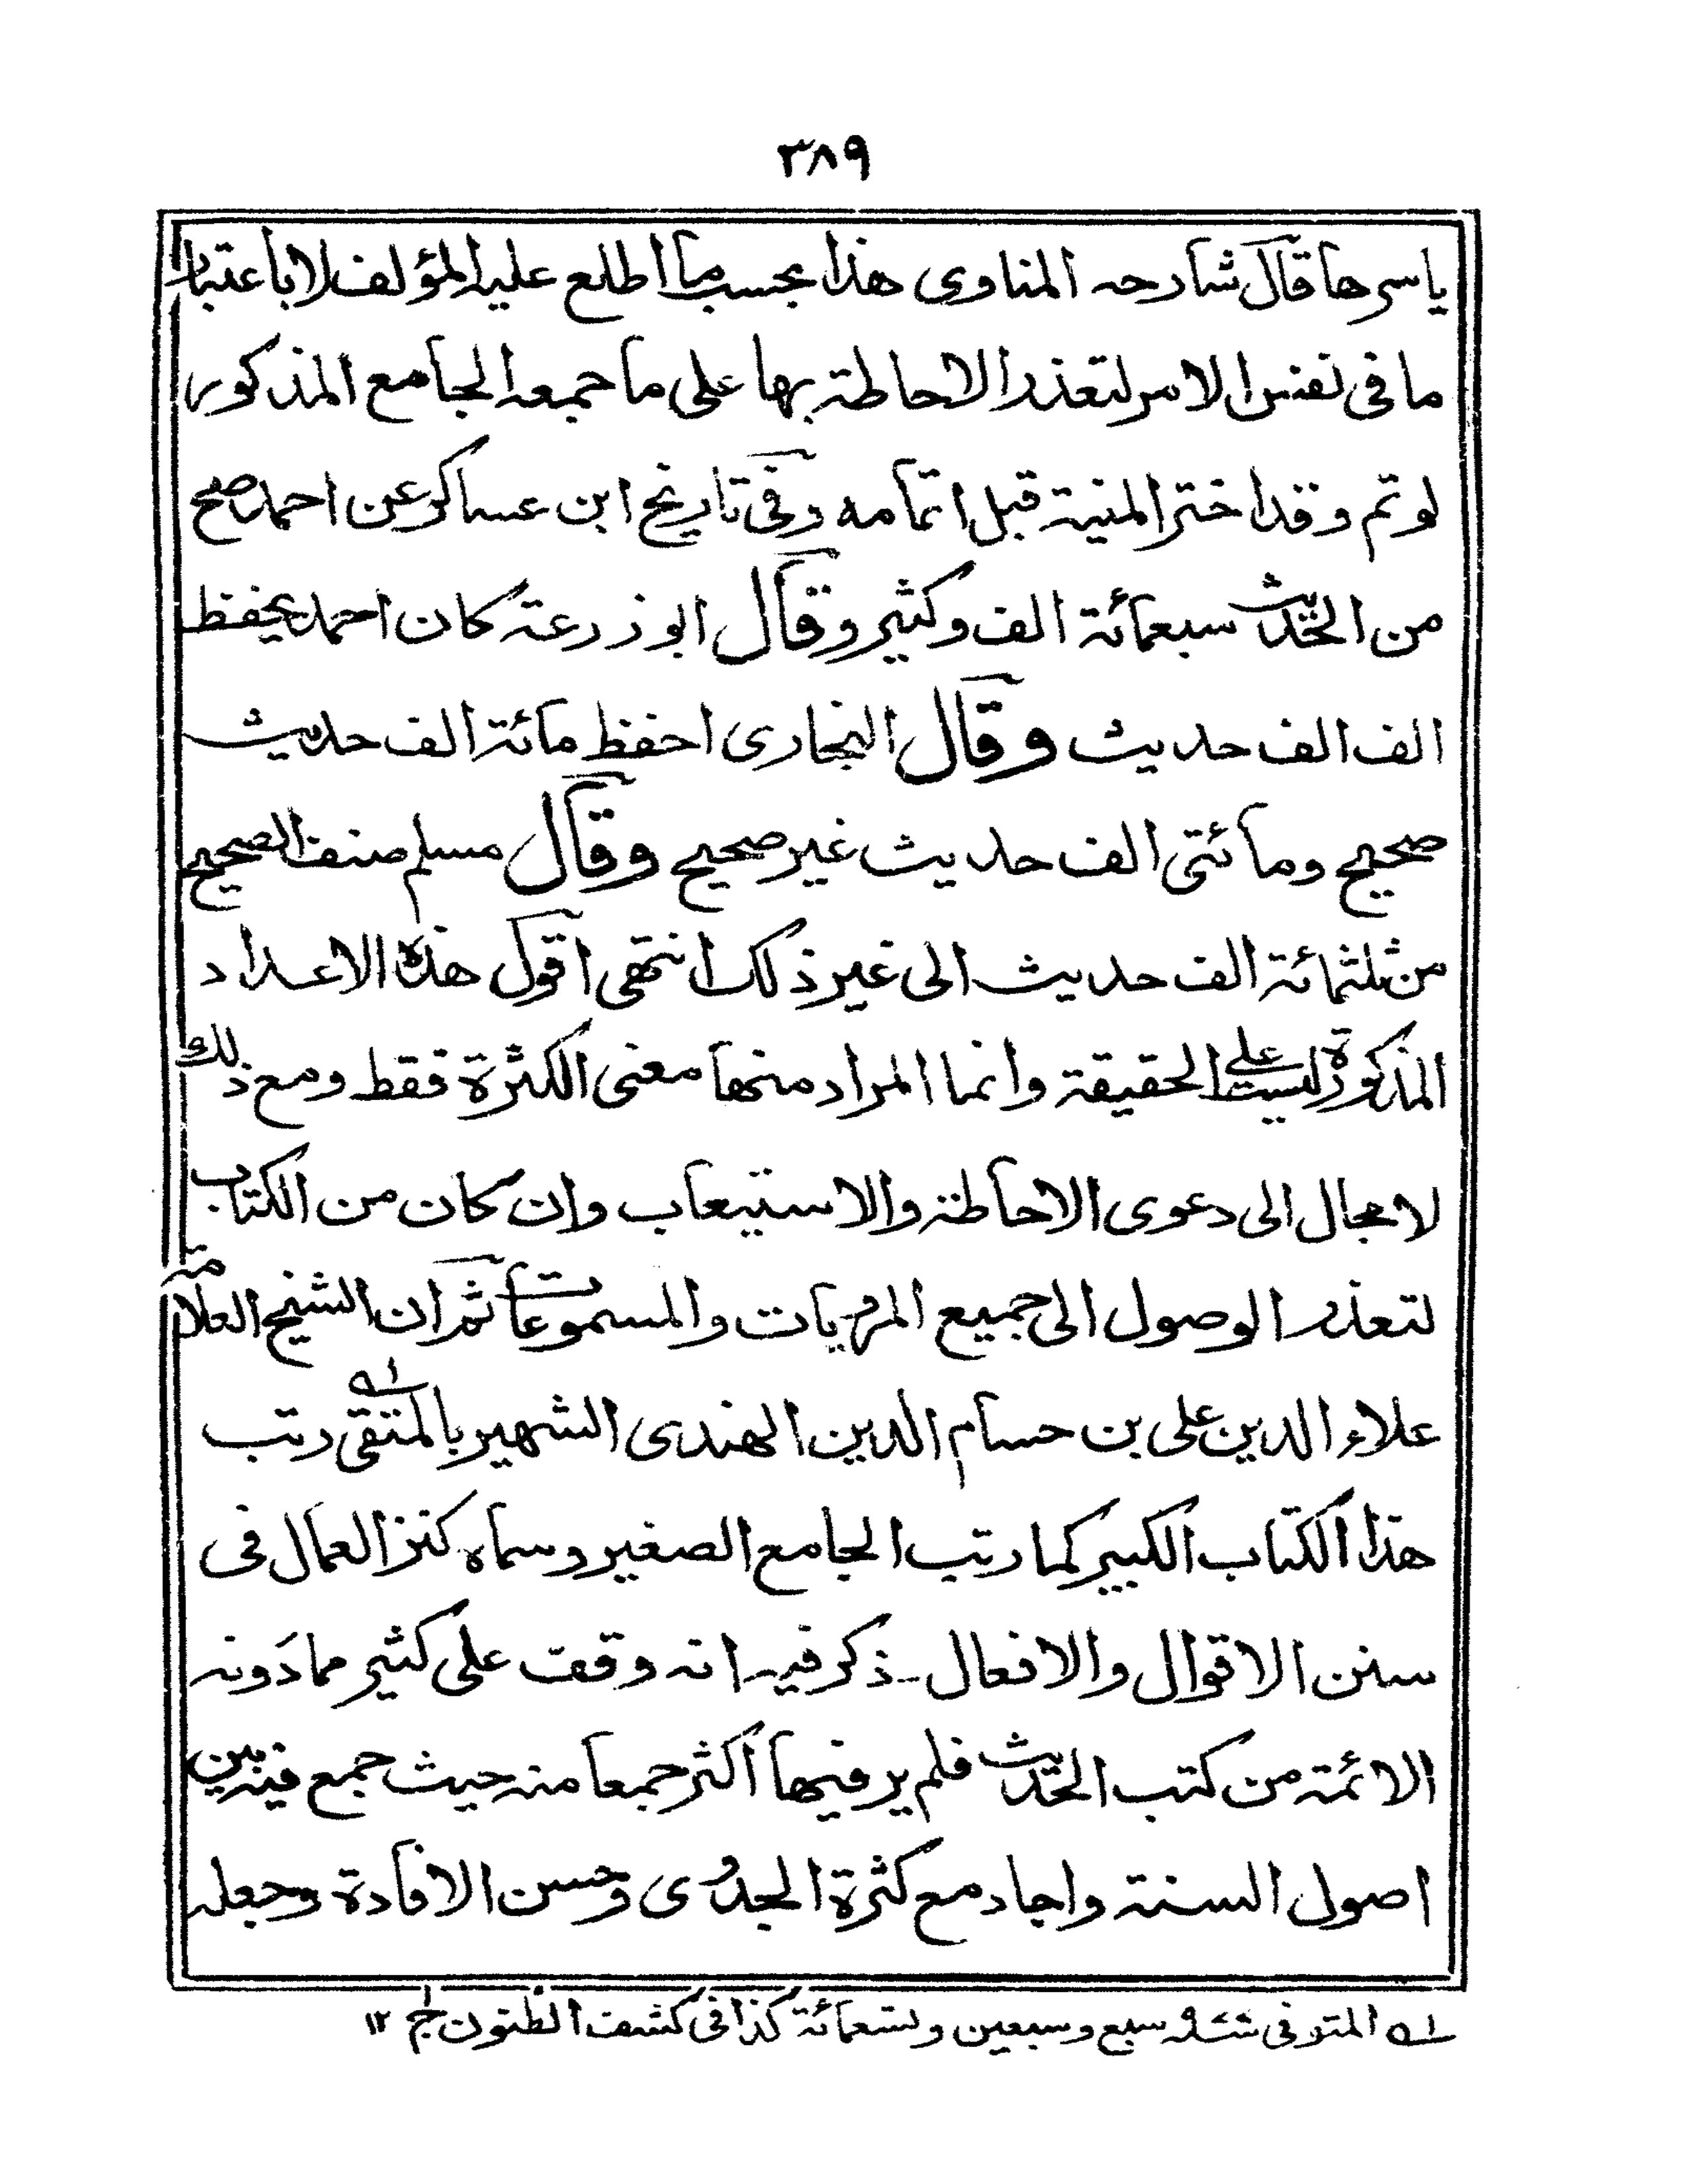 ٣٨٩
ياسرها قال شارحه المناوى هذا بحسب ما اطلع عليه المؤلف لا باعتبار
ما فى نفس الامر لتعذر الاحاطة بها على ما جمعه الجامع المذكور
لو تم وقد اخترالمنية قبل اتمامه وفى تاريخ ابن عساكر عن احمد صح
من الحديث سبعمائة الف وكثير وقال ابو زرعة كان احمد يحفظ
الف الف حديث وقال البخارى احفظ مائة الف حديث
صحيح ومائتى الف حديث غير صحيح وقال مسلم صنف الصحيح
من ثلثمائة الف حديث الى غير ذلك انتهى اقول هذه الاعداد
المذكورة ليست على الحقيقة وانما المراد منها معنى الكثرة فقط ومع ذلك
لا مجال الى دعوى الاحاطة والاستيعاب وان كان من الكتاب
لتعذر الوصول الى جميع المرويات والمسموعات ثم ان الشيخ العلامة
علاء الدين على بن حسام الدين الهندى الشهير بالمتقى ؁ رتب
هذا الكتاب الكبير كما رتب الجامع الصغير وسماه كنز العمال فى
سنن الاقوال والافعال - ذكر فيه انه وقف على كثير مما دونه
الائمة من كتب الحديث فلم ير فيها اكثر جمعا منه حيث جمع فيه بين
اصول السنة واجاد مع كثرة الجدوى وحسن الافادة وجعله
؁ المتوفى سنة سبع وسبعين وتسعمائة كذا فى كشف الظنون ج ١٢